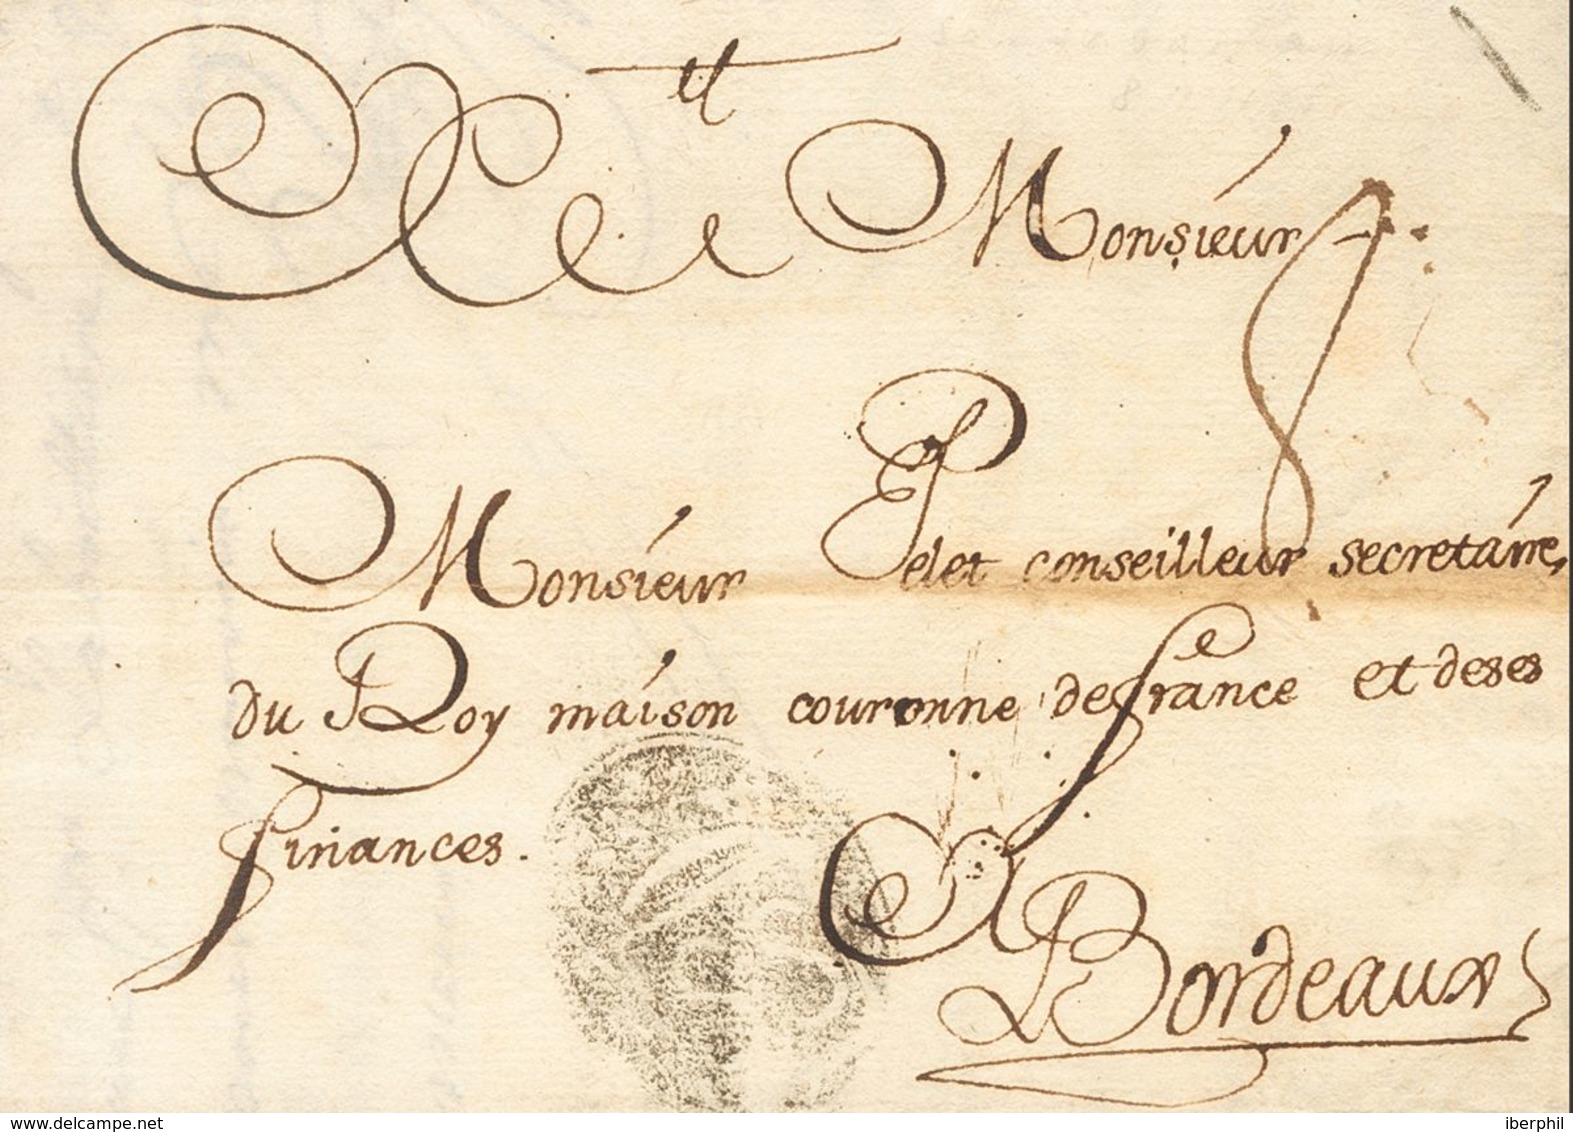 Monsieur
Monsieur Pelet conseilleur secretaire,
du Roy maison couronne de france et de ses
finances.
A Bordeaux
www.delcampe.net
iberphil